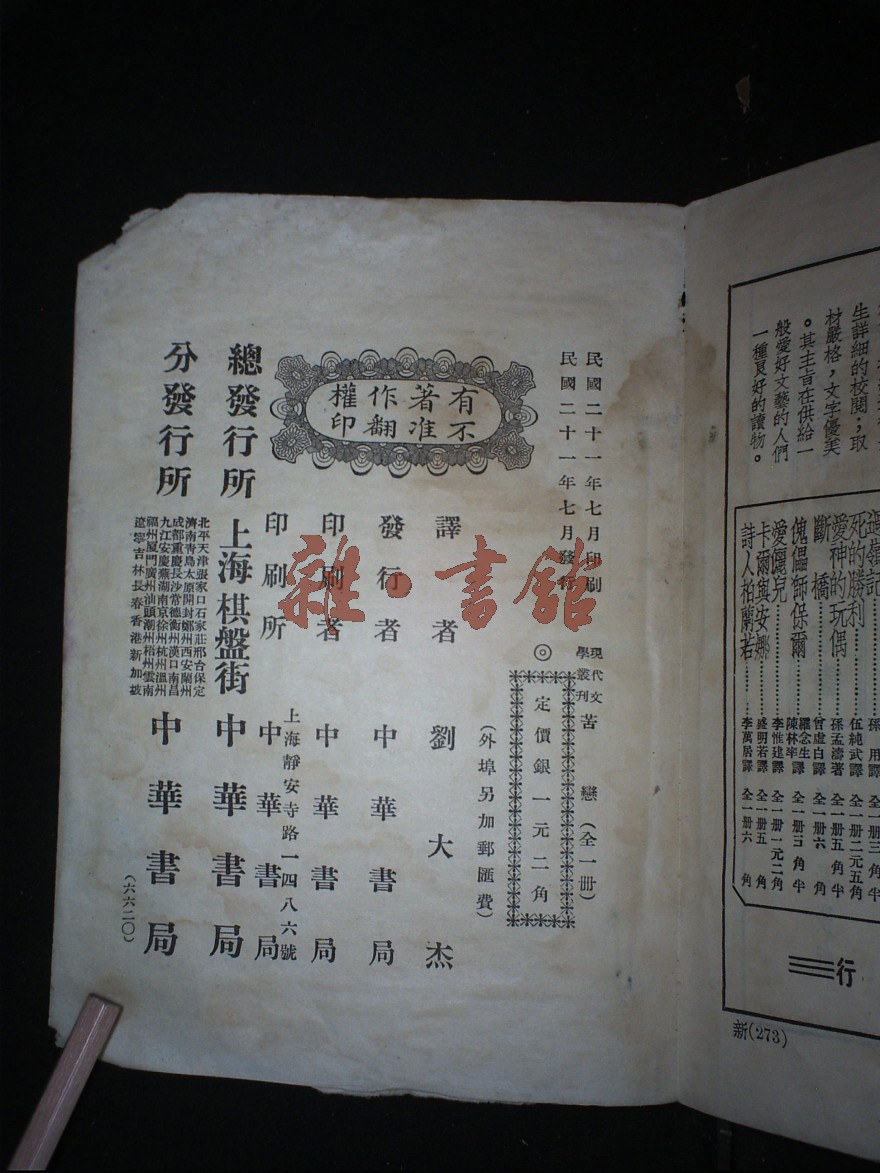 生詳細的校閱；取
材嚴格，文字優美
。其主旨在供給一
般愛好文藝的人們
一種良好的讀物。
孫用譯 全一冊三角半
死的勝利 伍純武譯 全一冊二元五角
愛神的玩偶 孫孟濤著 全一冊五角半
斷橋 曾虛白譯 全一冊六角
傀儡師保爾 羅念生 陳林率 譯 全一冊三角半
愛儷兒 李惟建譯 全一冊一元二角
卡爾與安娜 盛明若譯 全一冊五角
詩人柏蘭若 李萬居譯 全一冊六角
行
新(273)
民國二十一年七月印刷
民國二十一年七月發行
現代文學叢刊 苦戀（全一冊）
◎ 定價銀一元二角
（外埠另加郵匯費）
有著作權
不准翻印
譯者 劉大杰
發行者 中華書局
印刷者 中華書局
上海靜安寺路一四八六號
印刷所 中華書局
總發行所 上海棋盤街 中華書局
分發行所 中華書局
北平天津張家口石家莊邢台保定
濟南青島太原開封鄭州西安蘭州
成都重慶長沙常德衡州漢口南昌
九江安慶蕪湖南京徐州杭州溫州
福州廈門廣州汕頭潮州梧州雲南
遼寧吉林長春香港新加坡
（六六二〇）
雜·書館